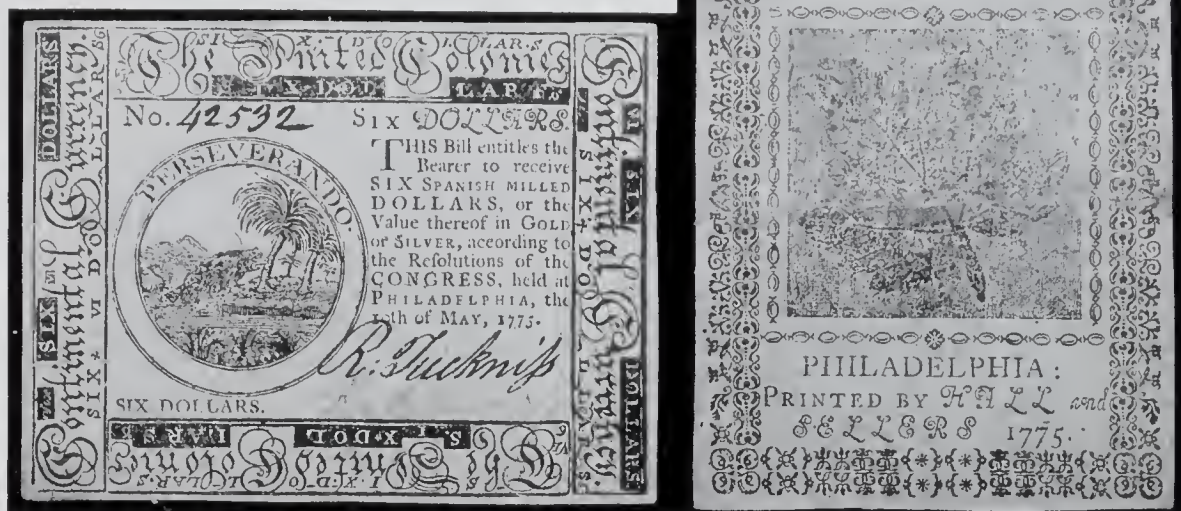 The United Colonies
SIX DOLLARS
No. 42532 SIX DOLLARS.
THIS Bill entitles the
Bearer to receive
SIX SPANISH MILLED
DOLLARS, or the
Value thereof in GOLD
or SILVER, according to
the Resolutions of the
CONGRESS, held at
PHILADELPHIA, the
10th of MAY, 1775.
PERSEVERANDO.
R. Tuckniss
SIX DOLLARS.
The United Colonies
Continental Currency.
DOLLARS
SIX
SIX * VI DO
Continental Currency.
SIX
DOLLARS
PHILADELPHIA:
PRINTED BY HALL and
SELLERS 1775.